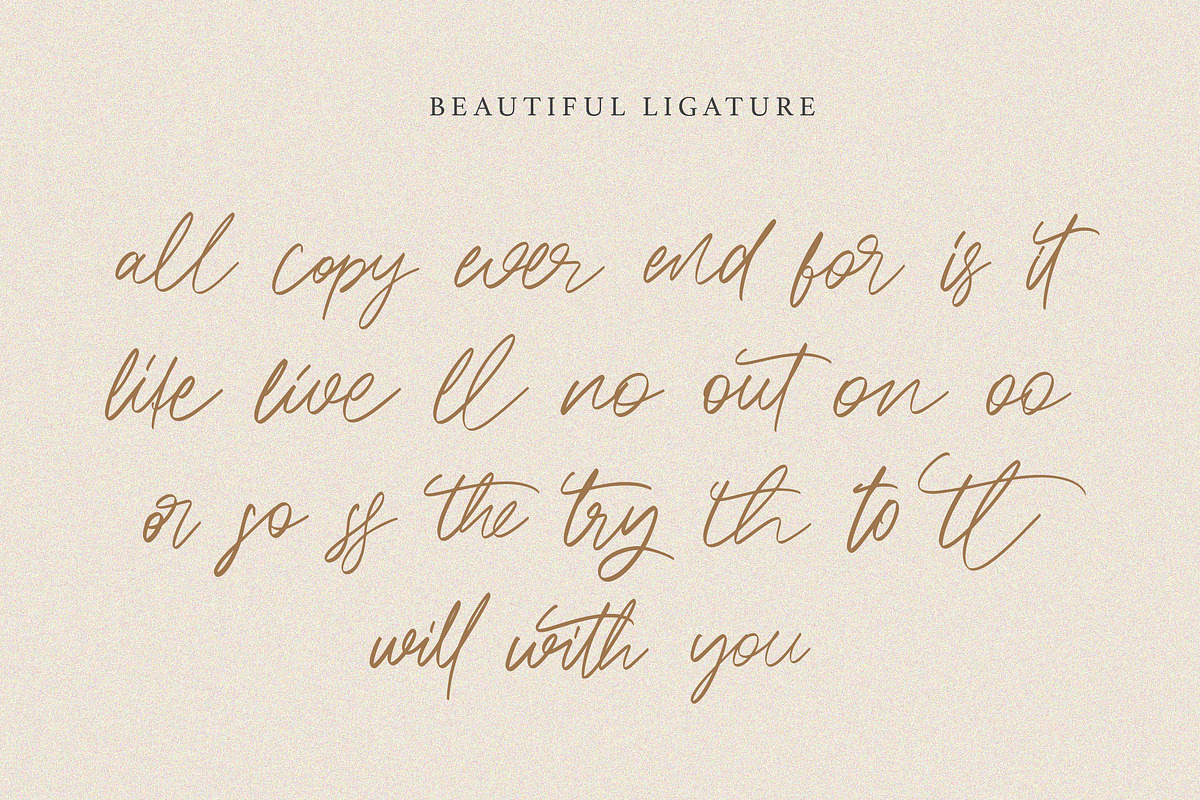 BEAUTIFUL LIGATURE
all copy ever end for is it
life live ll no out on oo
or so ss the try th to tt
will with you